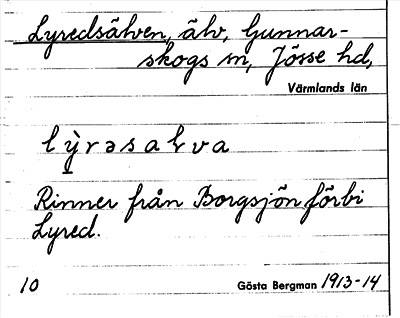 Lyredsälven, älv, Gunnar-
skogs sn, Jösse hd,
Värmlands län
lỳrəsaɽva
Rinner från Borgsjön förbi
Lyred.
10 Gösta Bergman 1913-14